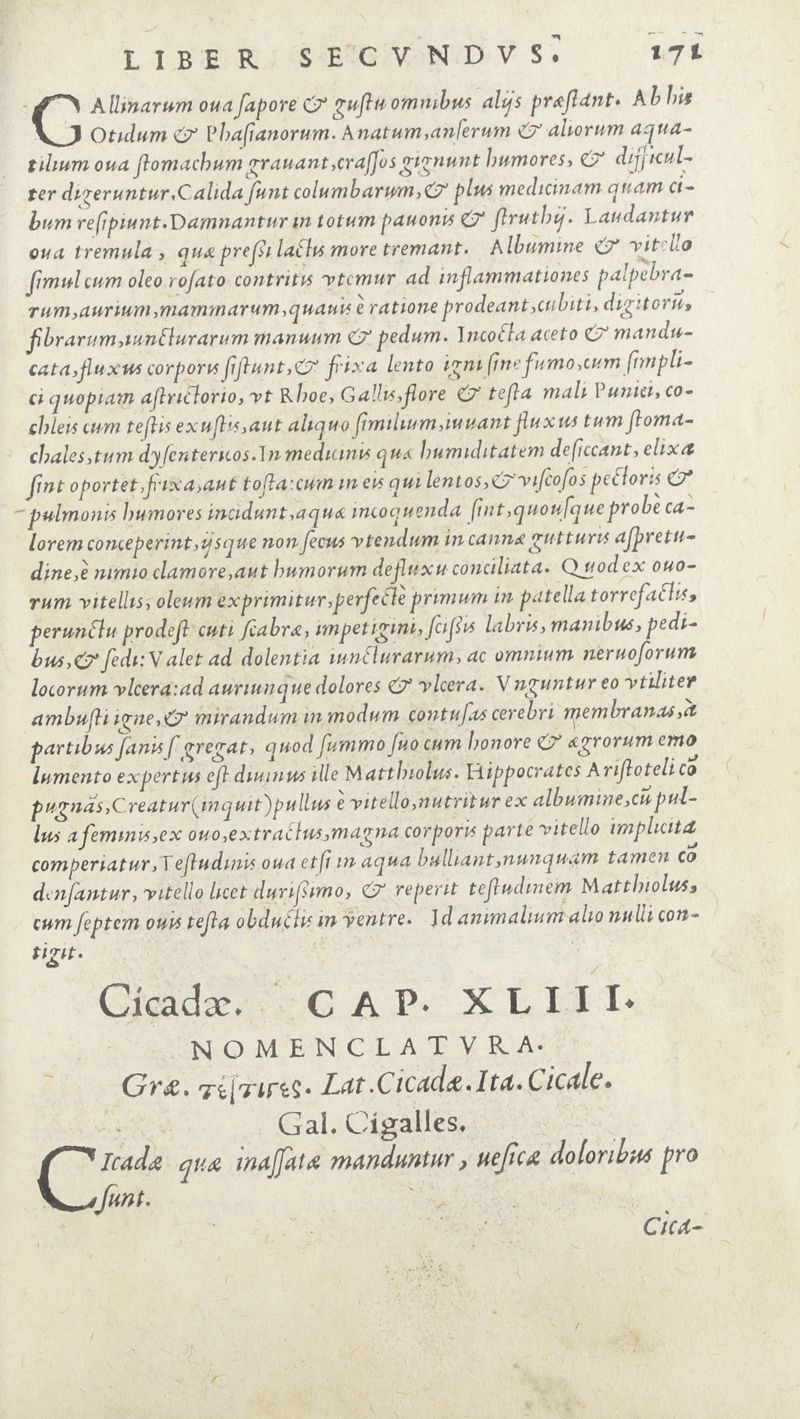 LIBER SECVNDVS. 171
GAllinarum oua sapore & gustu omnibus alijs præstãnt. Ab his
Otidum & Phasianorum. Anatum, anserum & aliorum aqua-
tilium oua stomachum grauant, crassos gignunt humores, & difficul-
ter digeruntur. Calida sunt columbarum, & plus medicinam quam ci-
bum resipiunt. Damnantur in totum pauonis & struthij. Laudantur
oua tremula, quæ pressi lactis more tremant. Albumine & vitello
simul cum oleo rosato contritis vtemur ad inflammationes palpebra-
rum, aurium, mammarum, quauis è ratione prodeant, cubiti, digitorũ,
fibrarum, iuncturarum manuum & pedum. Incocta aceto & mandu-
cata, fluxus corporis sistunt, & frixa lento igni sine fumo, cum simpli-
ci quopiam astrictorio, vt Rhoe, Gallis, flore & testa mali Punici, co-
chleis cum testis exustis, aut aliquo similium, iuuant fluxus tum stoma-
chales, tum dysentericos. In medicinis quæ humiditatem desiccant, elixa
sint oportet, frixa, aut tosta: cum in eis qui lentos, & viscosos pectoris &
pulmonis humores incidunt, aquæ incoquenda sint, quousque probè ca-
lorem conceperint, ijsque non secus vtendum in cannæ gutturis aspretu-
dine, è nimio clamore, aut humorum defluxu conciliata. Quod ex ouo-
rum vitellis, oleum exprimitur, perfectè primum in patella torrefactis,
perunctu prodest cuti scabræ, impetigini, scissis labris, manibus, pedi-
bus, & sedi: Valet ad dolentia iuncturarum, ac omnium neruosorum
locorum vlcera: ad auriunque dolores & vlcera. Vnguntur eo vtiliter
ambusti igne, & mirandum in modum contusas cerebri membranas, à
partibus sanis s gregat, quod summo suo cum honore & ægrorum emo
lumento expertus est diuinus ille Matthiolus. Hippocrates Aristoteli cõ
pugnãs, Creatur (inquit) pullus è vitello, nutritur ex albumine, cũ pul-
lus a feminis, ex ouo, extractus, magna corporis parte vitello implicita
comperiatur, Testudinis oua etsi in aqua bulliant, nunquam tamen cõ
densantur, vitello licet durissimo, & reperit testudinem Matthiolus,
cum septem ouis testa obductis in ventre. Id animalium alio nulli con-
tigit.
Cicadæ. CAP. XLIII.
NOMENCLATVRA.
Græ. τέττιγες. Lat. Cicadæ. Ita. Cicale.
Gal. Cigalles.
CIcadæ quæ inassatæ manduntur, uesicæ doloribus pro
sunt.
Cica-